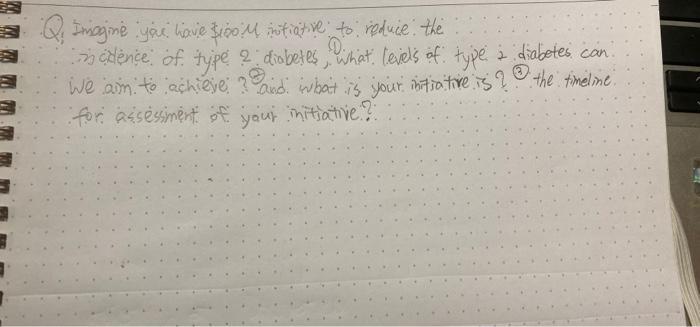 Q. Imagine you have $100M initiative to reduce the
incidence of type 2 diabetes, ① what levels of type 2 diabetes can
we aim to achieve? ② and what is your initiative is? ③ the timeline
for assessment of your initiative?